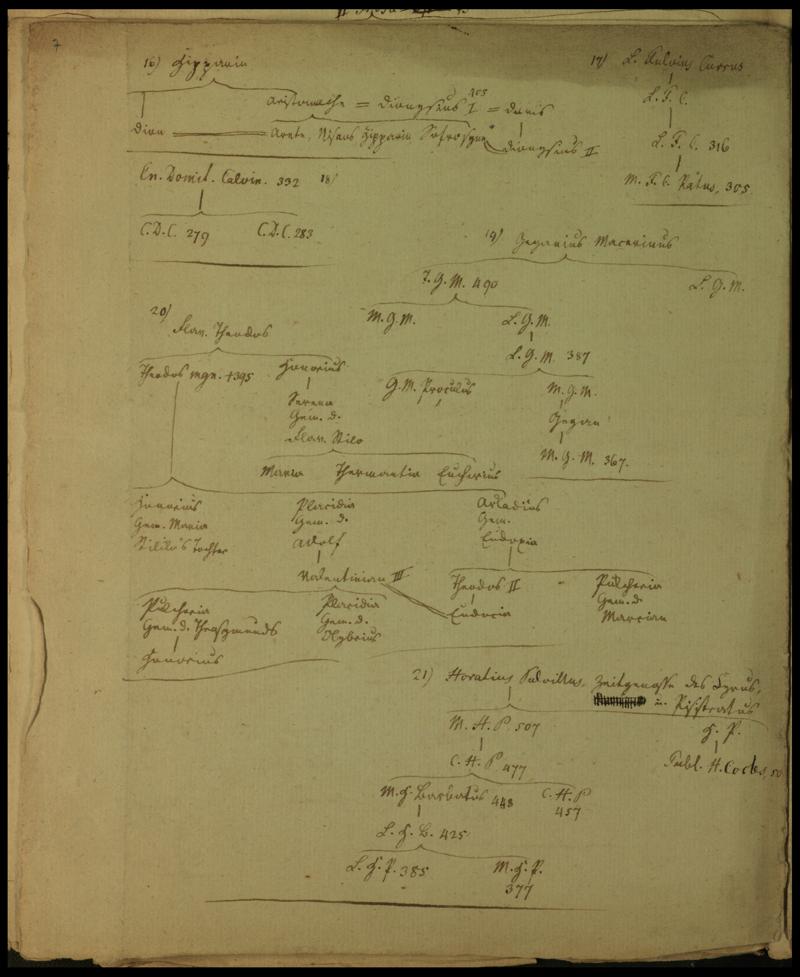 7
16) Hipparin
Aristomache = Dionysius I = Doris
405
Dion Arete, Nisäus Hipparin Sofrosyne
Dionysius II
17) L. Fulvius Curvus
L. F. C.
L. F. C. 316
M. F. C. Pätus, 305.
Cn. Domit. Calvin. 332 18)
C. D. C. 279 C. D. C. 283
19) Geganius Macerinus
T. G. M. 490 L. G. M.
M. G. M. L. G. M.
L. G. M. 387
G. M. Proculus M. G. M.
Gegan
M. G. M. 367.
20)
Flav. Theodos
Theodos mgn. +395 Honorius
Serena
Gem. d.
Flav. Stilo
Maria Thermantia Eucherius
Honorius Placidia Arkadius
Gem. Maria Gem. d. Gem.
Stiliko's Tochter Adolf Eudoxia
Valentinian III Theodos II Pulcheria
Gem. d.
Eudocia Marcian
Pulcheria Placidia
Gem. d. Thrasymunds Gem. d.
Olybrius
Honorius
21) Horatius Pulvillus, Zeitgenosse des Cyrus,
u. Pisistratus
M. H. P. 507 H. P.
C. H. P. 477 Publ. H. Cocles, 50
M. H. Barbatus 448 C. H. P.
457
L. H. B. 425
L. H. P. 385 M. H. P.
377